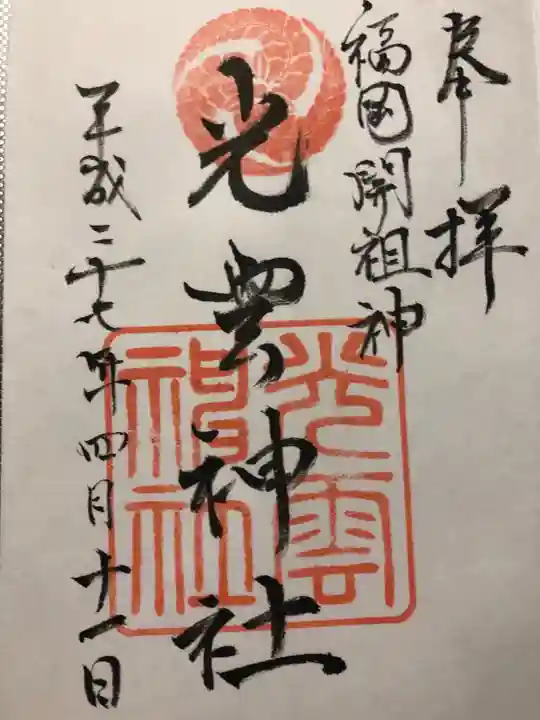 奉拝
福岡開祖神
光雲神社
平成二十七年四月十一日
光雲
神社